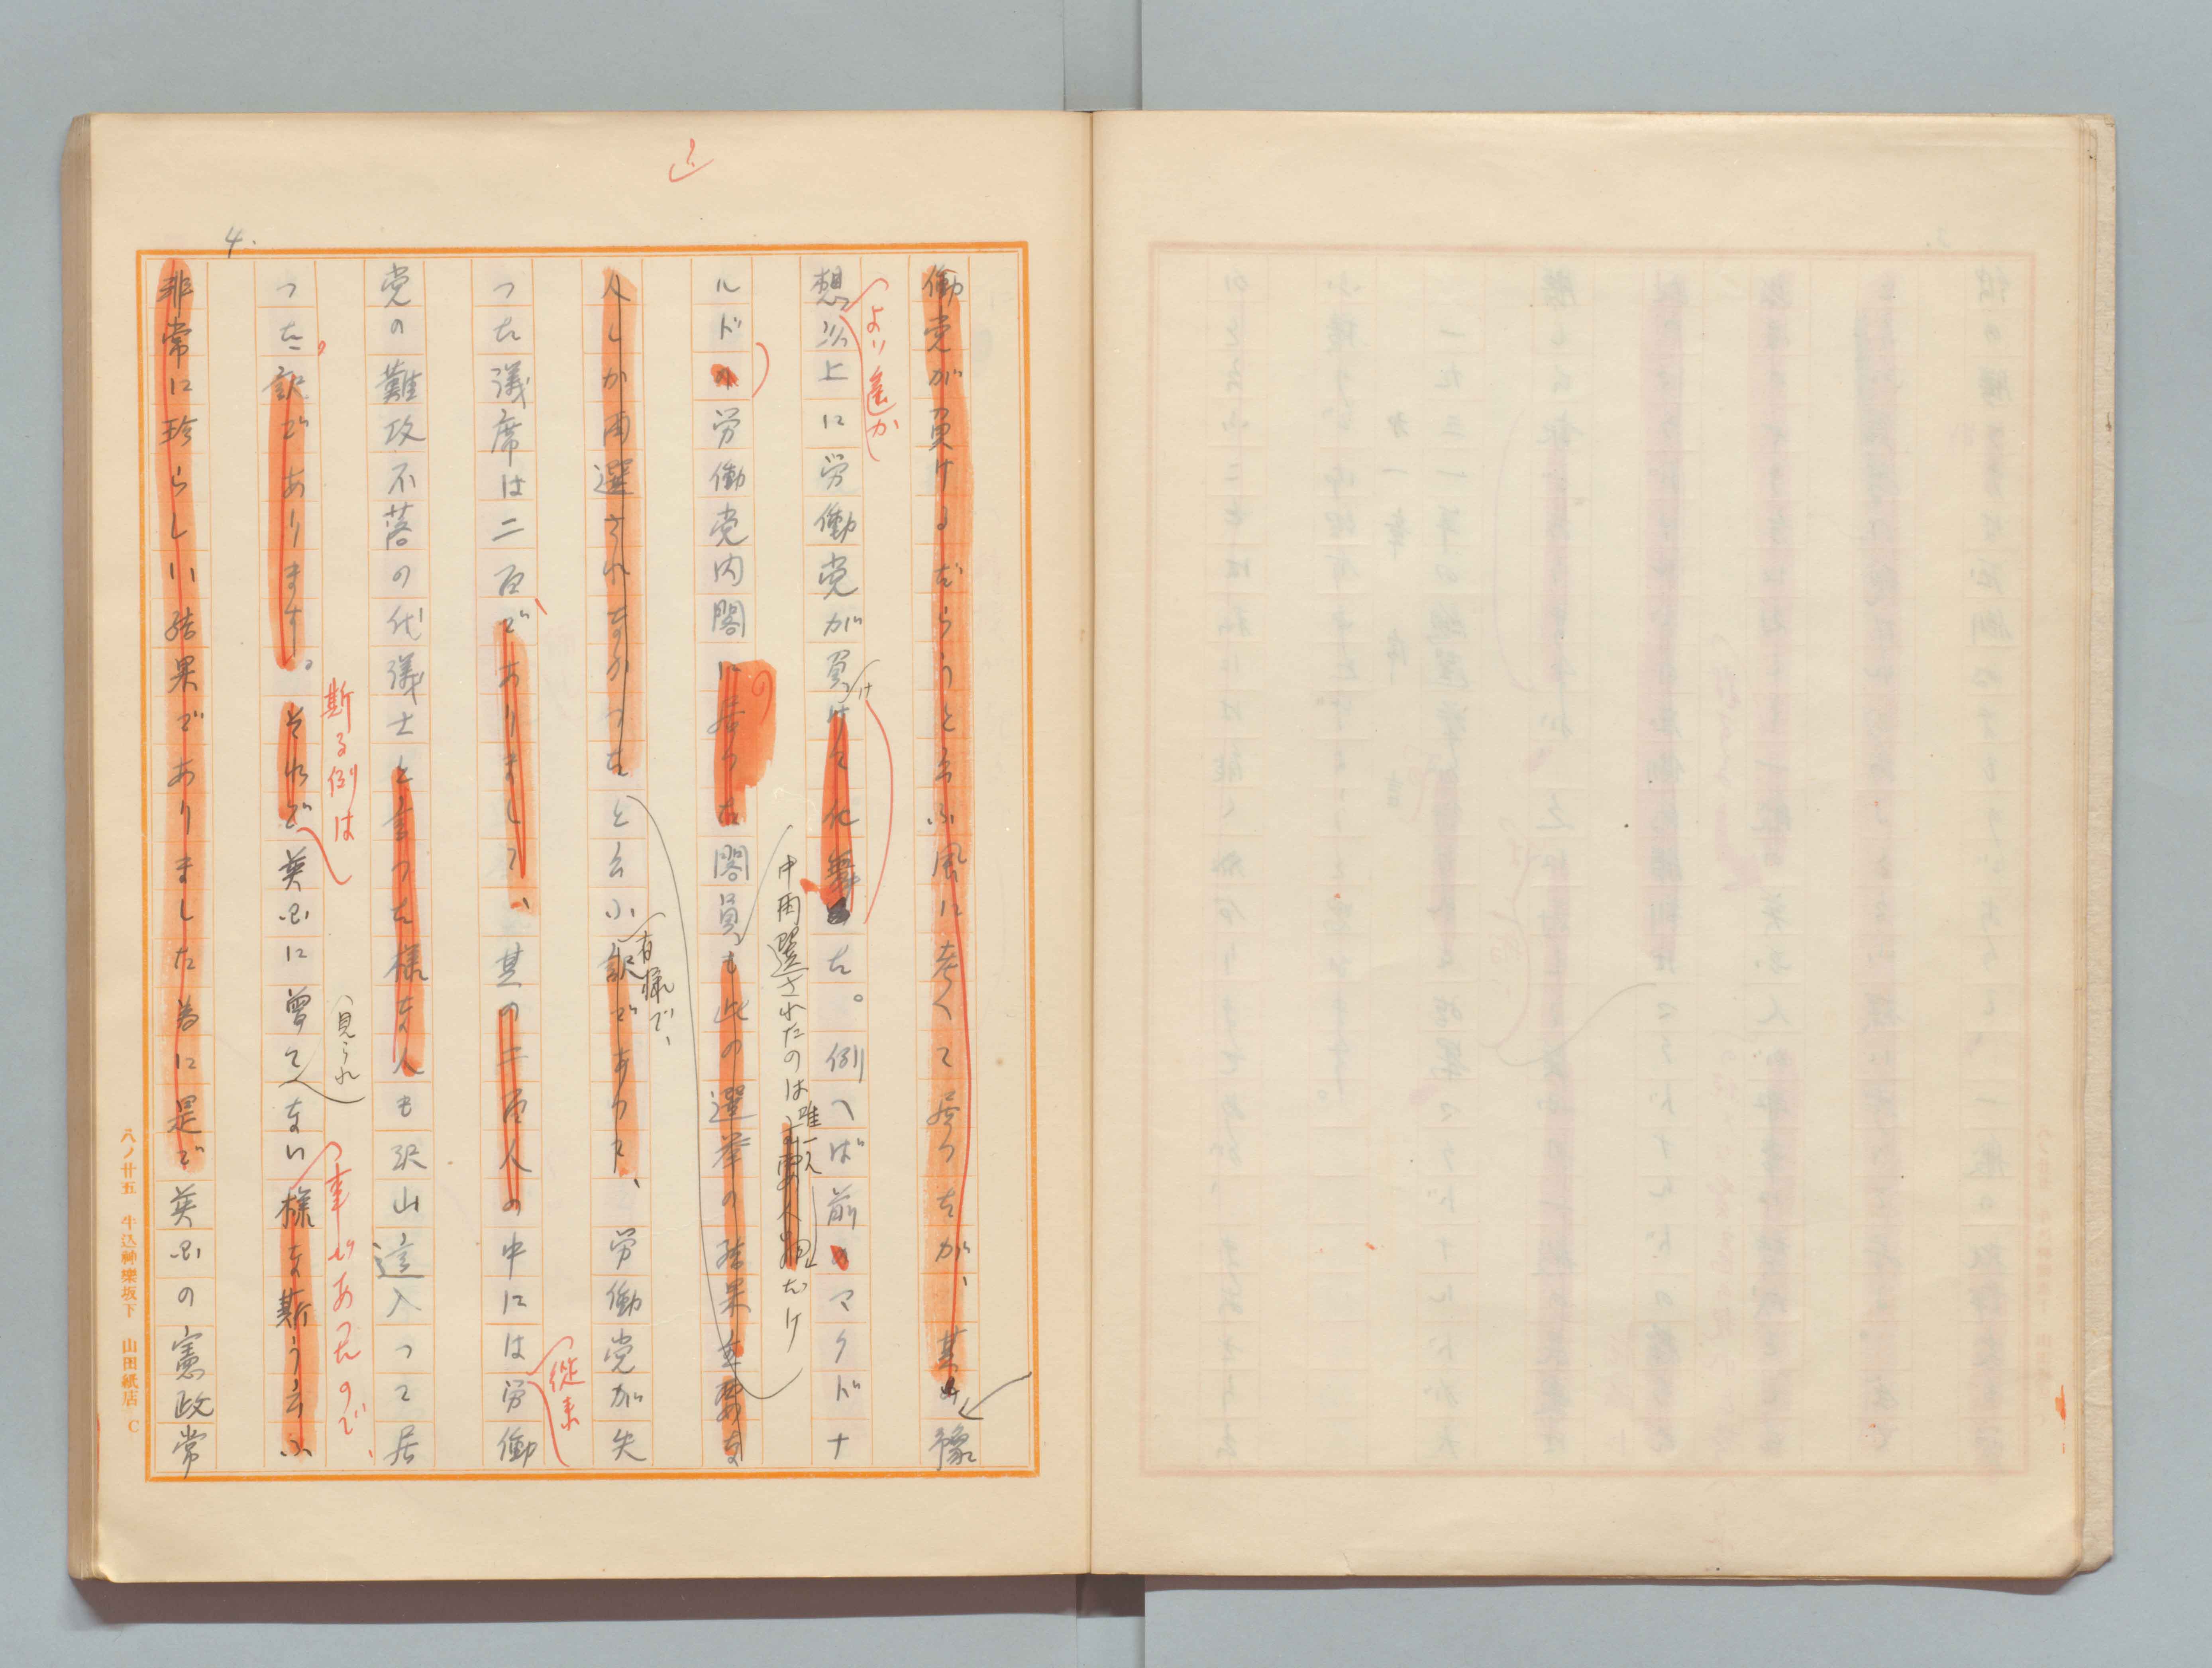 4.
働党が負けるだらうと云ふ風に考へて居つたが、其 豫
想以上に労働党が負けて た。例へば前のマクドナ
より遙か
け
ルドの労働党内閣に居つた閣員も此の選挙の結果 な
中再選されたのは唯 だけ
人しか再選されなかつたと云ふ訳であり 、労働党が失
有様で、
つた議席は二百でありまして、其の二百人の中には労働
従来
党の難攻不落の代議士と言つた様な人も沢山這入つて居
つた訳であります。それで英国に曾てない様な斯う云ふ
斯る例は
見られ
事であつたので、
非常に珍らしい結果でありました為に是で英国の憲政常
八ノ廿五 牛込神樂坂下 山田紙店 C